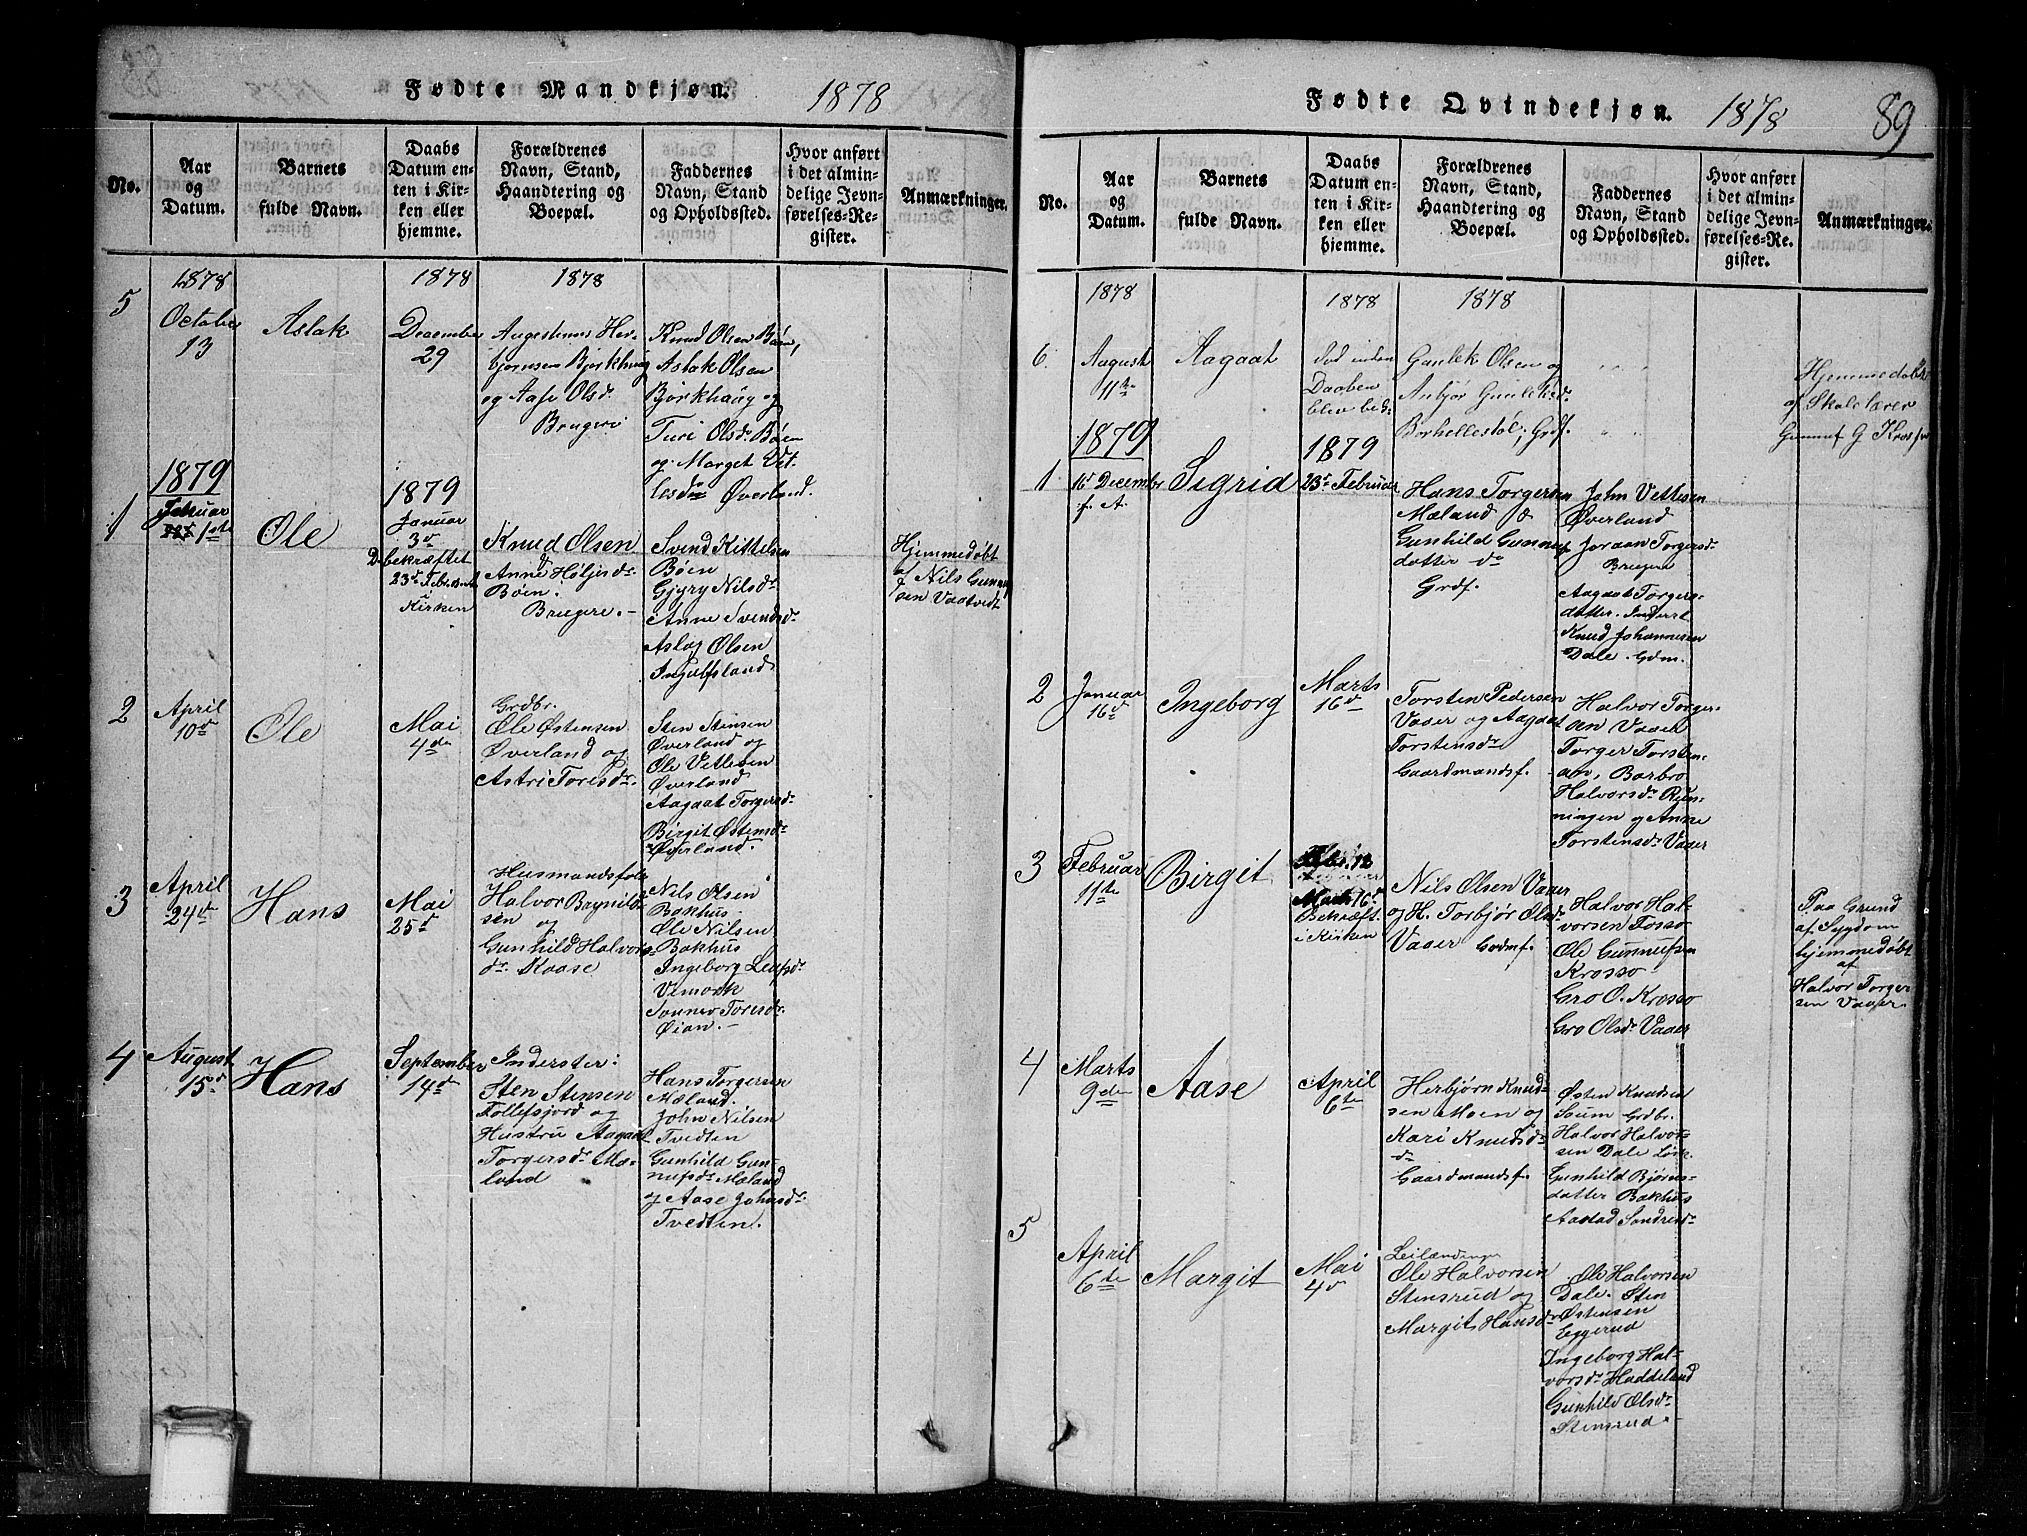 Fødte Mandkjøn. 1878
No.
Aar
og
Datum.
Barnets
fulde Navn.
Daabs
Datum en-
ten i Kir-
ken eller
hjemme.
Forældrenes
Navn, Stand,
Haandtering og
Boepæl.
Faddernes
Navn, Stand
og Opholdssted.
Hvor anført
i det almin-
delige Jevn-
førelses-Re-
gister.
Anmærkninger.
1878
1878
1878
5
October
13
Aslak
December
29
Augestinus Her-
bjørnsen Bjørkhaug
og Aase Olsd.
Brugeri
Knud Olsen Bøen,
Aslak Olsen
Bjørkhaug og
Turi Olsdr Bøen
og Marget Vet-
lesdr Øverland.
1879
1879
1
Februar
1ste
Ole
Januar
3d
bekræftet
23d Febr.
i
Kirken
Knud Olsen
Anne Høljesdr.
Bøen.
Brugere.
Svend Kittelsen
Bøen
Gjyry Nilsdr
Anne Svendsdr.
Aslag Olsen
Ingulfsland
Hjemmedøbt
af Nils Gunnuf-
sen Vaatvedt
2
April
10de
Ole
Mai
4de
Grdbr.
Ole Østensen
Øverland og
Astri Toresdr.
Sten Stensen
Øverland og
Ole Vetlesen
Øverland
Aagaat Torgersdr.
Birgit Østensdr
Øverland.
3
April
24de
Hans
Mai
25d
Husmandsfolk
Halvor Bøynild-
sen og
Gunhild Halvors-
dr. Kaase
Nils Olsen
Bakhus
Ole Nilsen
Bakhus
Ingeborg Leifsdr
Vemork
Gunnor Toresdr.
Øian.
4
August
15d
Hans
September
14d
Inderster:
Sten Stensen
Follefsjord og
Hustru Aagaat
Torgersdr. Mæ-
land
Hans Torgersen
Mæland.
John Nilsen
Tvedten
Gunhild Gun-
nufsdr Mæland
og Aase Johnsdr.
Tvedten.
Fødte Qvindekjøn. 1878 89
No.
Aar
og
Datum.
Barnets
fulde Navn.
Daabs
Datum en-
ten i Kir-
ken eller
hjemme.
Forældrenes
Navn, Stand,
Haandtering og
Boepæl.
Faddernes
Navn, Stand
og Opholdssted.
Hvor anført
i det almin-
delige Jevn-
førelses-Re-
gister.
Anmærkninger.
1878
1878
1878
6
August
11te
Aagaat
død inden
Daaben
blev bek.
Gunlek Olsen og
Anbjør Gunleksdr.
Borhellestøl, Grdf.
Hjemmedøbt
af Skolelærer
Gunnuf G Krosso
1879
1879
1
16d December
f. A.
Sigrid
23d Februar
Hans Torgersen
Mæland &
Gunhild Gunnufs-
datter do
Grdf.
John Vetlesen
Øverland
Joraan Torgersdr.
Brugere
Aagaat Torgers-
datter. Inderst
Knud Johannesen
Dale. Gdm.
2
Januar
16d
Ingeborg
Marts
16d
Torsten Pedersen
Vaaer og Aagaat
Torstensdr
Gaardmandsf.
Halvor Torger-
sen Vaaer
Torger Torsten-
sen, Barbro
Halvorsdr Røn-
ningen og Anne
Torstensdr Vaaer
3
Februar
11te
Birgit
Febr. 12
Marts 16d
Bekræft.
i Kirken
Nils Olsen Vaaer
og H. Torbjør Olsdr
Vaaer Grdmf.
Halvor Hal-
vorsen Fosso
Ole Gunnufsen
Krosso
Gro O. Krosso
Gro Olsdr Vaaer
Paa Grund
af Sygdom
hjemmedøbt
af
Halvor Torger-
sen Vaaer.
4
Marts
9de
Aase
April
6te
Herbjørn Knud-
sen Moen og
Kari Knudsdr
do
Gaardmandsf.
Østen Knudsen
Saum Grdbr.
Halvor Halvor-
sen Dale Løsk.
Gunhild Bjørns-
datter Bakhus
Aastad Sondresdr
5
April
6te
Margit
Mai
4d
Leilændinge
Ole Halvorsen
Stensrud og
Margit Hansdr
Ole Halvorsen
Dale. Sten
Østensen
Eggerud
Ingeborg Hal-
vorsdr Haddeland
Gunhild Olsdr.
Stensrud.